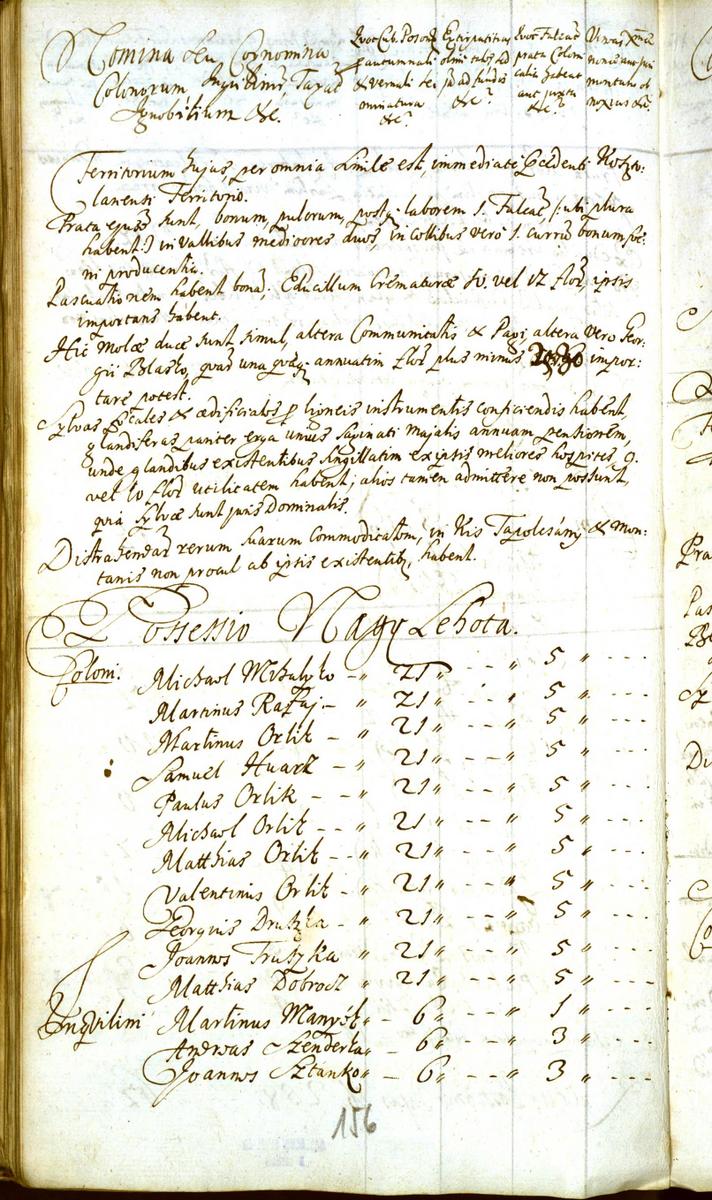 Nomina seu Cognomina
Colonorum Inquilinor, Taxal
Ignobilium &c.
Quot Cub. Poson
autumnali
& vernali seu
minatura
&c?
Extirpatitias
olim
&c?
Quot Falcat
prata Coloni
calia habent
aut juxta
&c?
Vineas
obnoxias &c.
Territorium hujus, per omnia simile est, immediate praecedenti Koszto:
lanensi Territorio.
Prata ejus sunt, bonum, pulcrum, postq laborem 1. Falcat /: uti plura
habent :/ in Vallibus mediocres duos, in collibus vero 1. currum bonum foe:
ni producentia.
Pascuationem habent bona; Educillum Crematurae 10. vel 12 flor, ipsis
importans habent.
Hic Molae duae sunt simul, altera Communitatis & Pagi, altera vero Geor:
gii Blasko, quar una quaeq annuatim flor plus minus 30 impor:
tare potest.
Sylvas focales & aedificiales p ligneis instrumentis conficiendis habent,
glandiferas pariter erga unius saginati majalis annuam pensionem,
unde glandibus existentibus singillatim ex ipsis meliores hospites 9.
vel 10 flor utilitatem habent; alios tamen admittere non possunt,
quia sylvae sunt juris Dominalis.
Distrahendar rerum suarum Commoditatem, in Kis Tapolcsány & Mon:
tanis non procul ab ipsis existentib, habent.
Possessio Nagy Lehota.
Coloni. Michael Mihalyko - " 21 " - - " 5 " - - -
Martinus Razaj - " 21 " - - " 5 " - - -
Martinus Orlik - " 21 " - - " 5 " - - -
Samuel Huark - " 21 " - - " 5 " - - -
Paulus Orlik - - " 21 " - - " 5 " - - -
Michael Orlik - - " 21 " - - " 5 " - - -
Matthias Orlik - - " 21 " - - " 5 " - - -
Valentinus Orlik - " 21 " - - " 5 " - - -
Georgius Druska - " 21 " - - " 5 " - - -
Joannes Truszka " 21 " - - " 5 " - - -
Matthias Dobrocz " 21 " - - " 5 " - - -
Inquilini Martinus Manyik " - 6 " - - " 1 " - - -
Andreas Szenderka " - 6 " - - " 3 " - - -
Joannes Sztanko " - 6 " - - " 3 " - - -
156